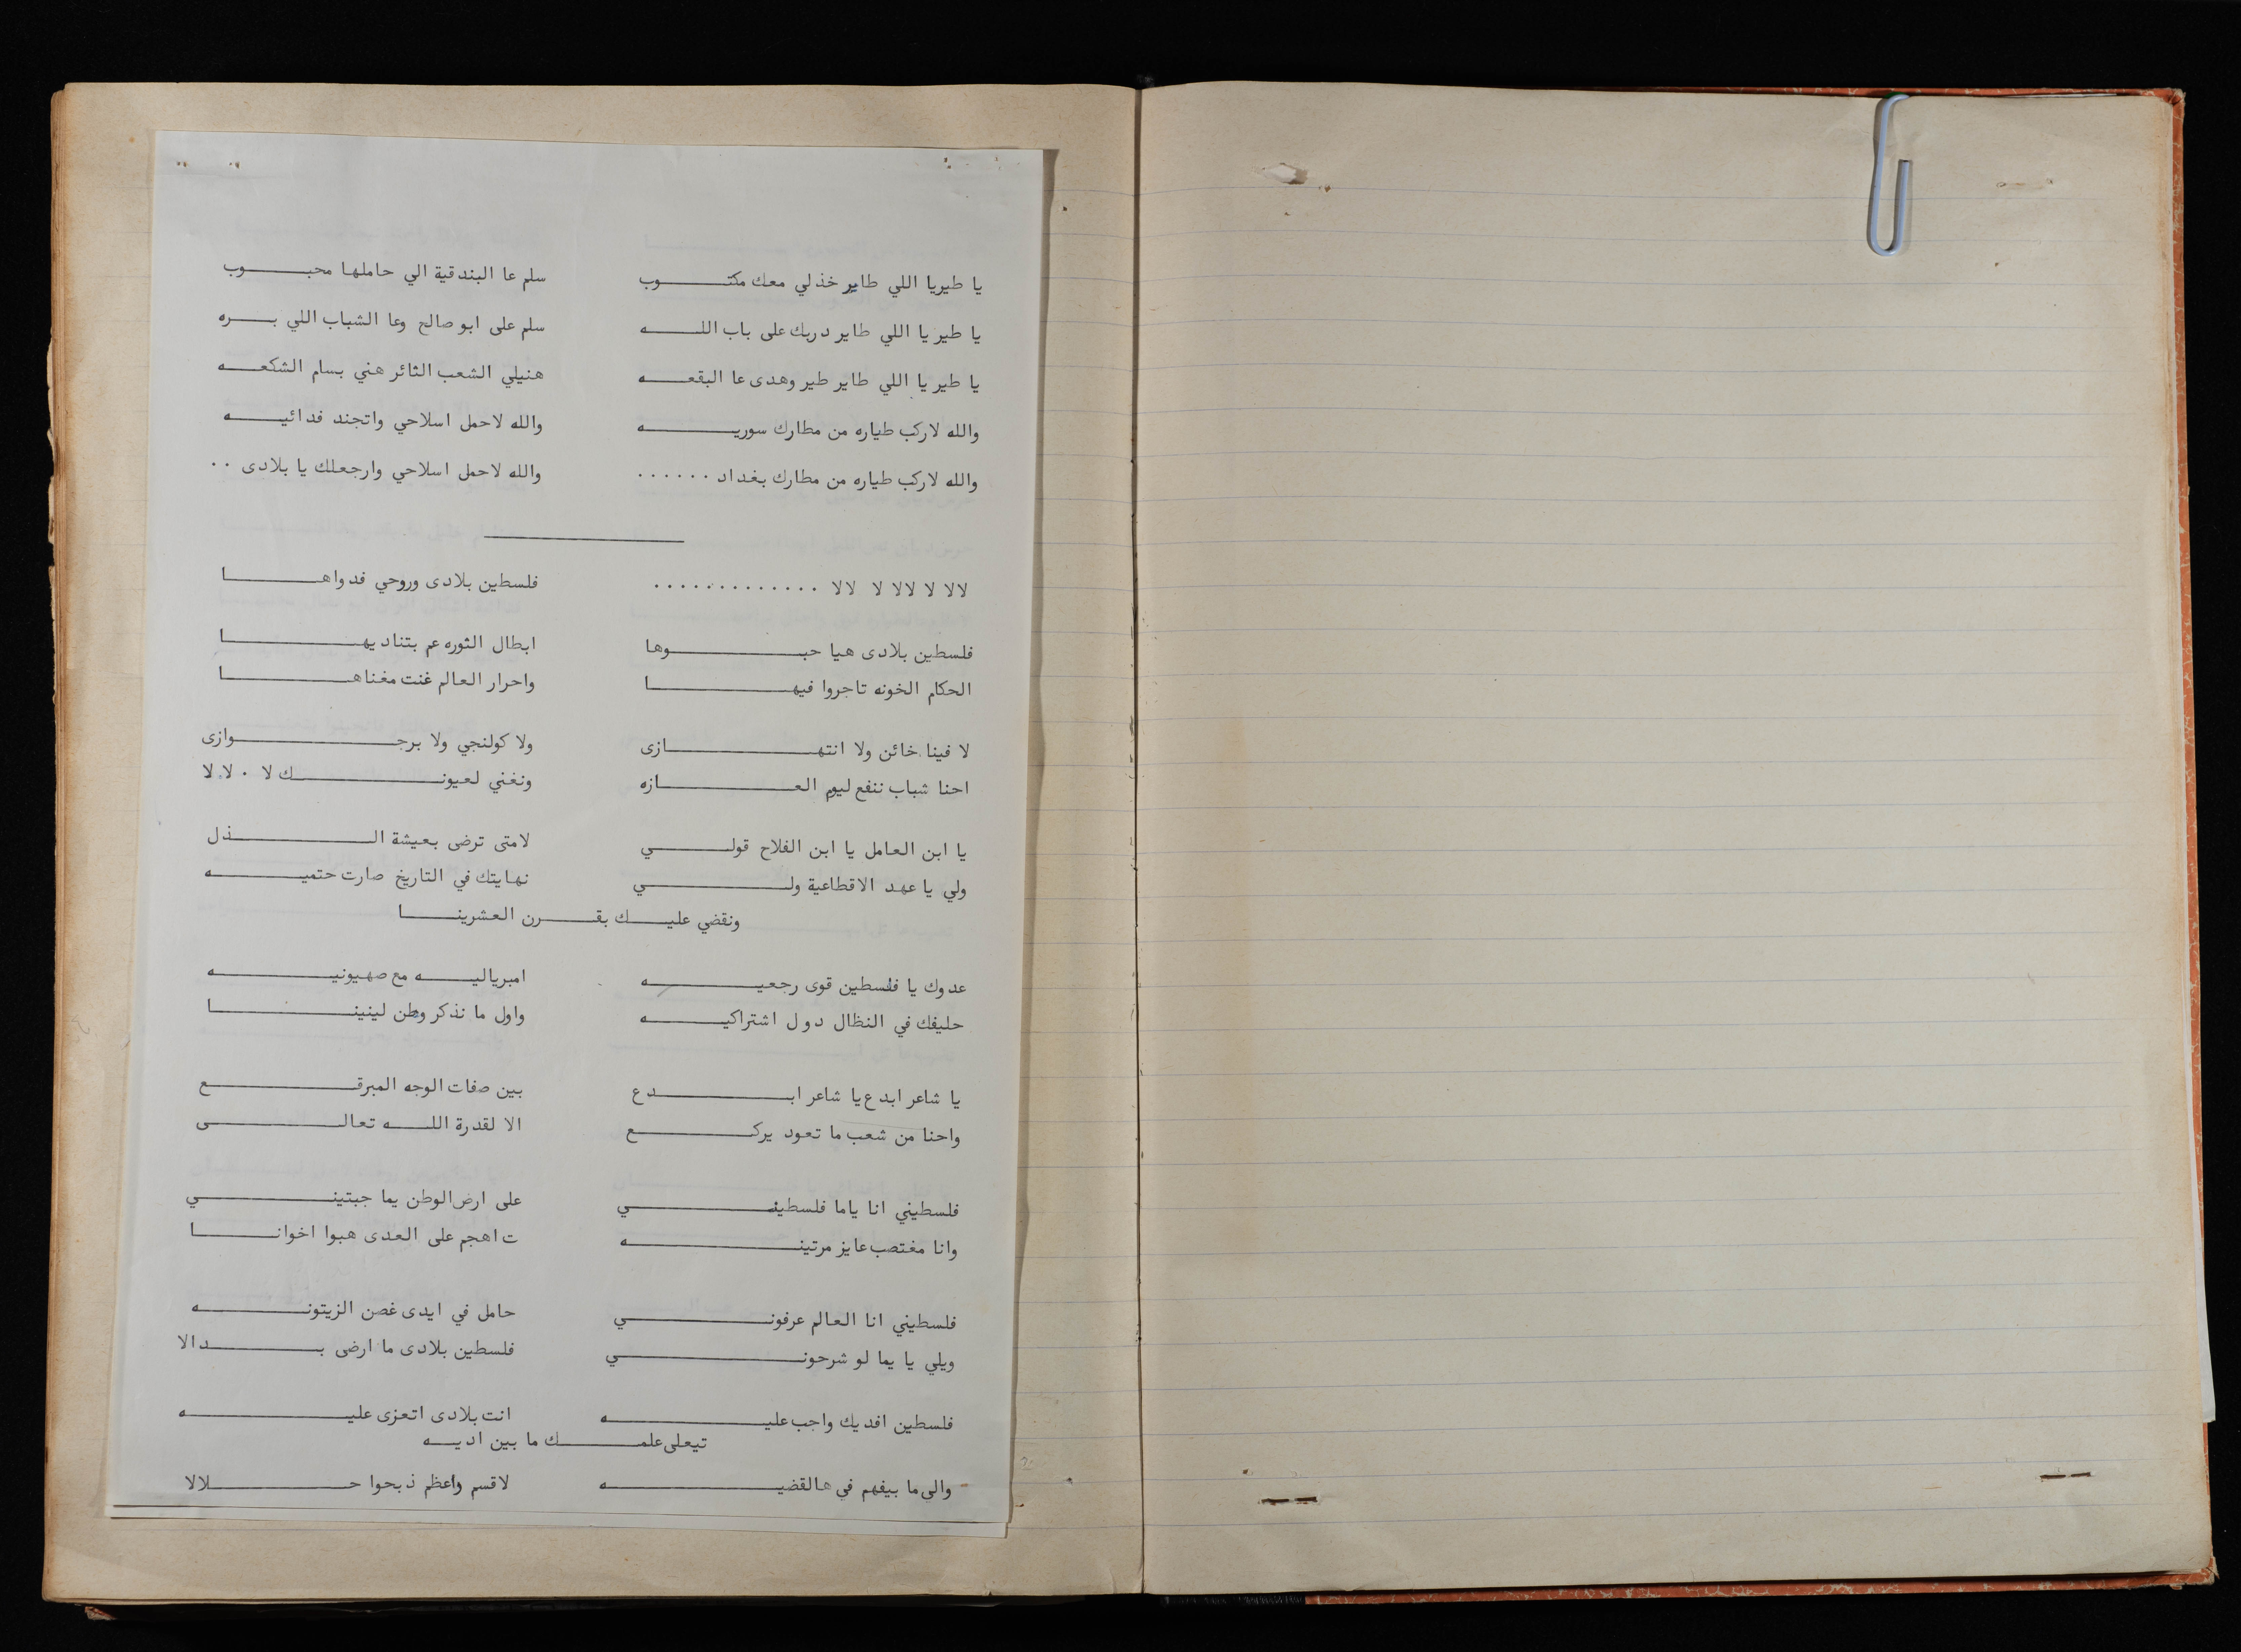 يا طير يا اللي طاير خذ لي معك مكتوب سلم عا البندقية الي حاملها محبوب
يا طير يا اللي طاير دربك على باب الله سلم على ابو صالح وعا الشباب اللي بره
يا طير يا اللي طاير طير وهدى عا البقعه هنيلي الشعب الثائر هني بسام الشكعه
والله لاركب طياره من مطارك سوريه والله لاحمل اسلاحي واتجند فدائيه
والله لاركب طياره من مطارك بغداد ...... والله لاحمل اسلاحي وارجعلك يا بلادى ..
لالا لا لالا لا لالا ............. فلسطين بلادى وروحي فدواها
فلسطين بلادى هيا حبوها ابطال الثوره عم بتناديها
الحكام الخونه تاجروا فيها واحرار العالم غنت مغناها
لا فينا خائن ولا انتهازى ولا كولنجي ولا برجوازى
احنا شباب ننفع ليوم العازه ونغني لعيونك لا . لا لا
يا ابن العامل يا ابن الفلاح قولي لامتى ترضى بعيشة الذل
ولي يا عهد الاقطاعية ولي نهايتك في التاريخ صارت حتميه
ونقضي عليك بقرن العشرينا
عدوك يا فلسطين قوى رجعيه امبرياليه مع صهيونيه
حليفك في النظال دول اشتراكيه واول ما نذكر وطن لينينا
يا شاعر ابدع يا شاعر ابدع بين صفات الوجه المبرقع
واحنا من شعب ما تعود يركع الا لقدرة الله تعالى
فلسطيني انا ياما فلسطيني على ارض الوطن يما جبتيني
وانا مغتصب عايز مرتينه ت اهجم على العدى هبوا اخوانا
فلسطيني انا العالم عرفوني حامل في ايدى غصن الزيتونه
ويلي يا يما لو شرحوني فلسطين بلادى ما ارضى بدالا
فلسطين افديك واجب عليه انت بلادى اتعزى عليه
تيعلى علمك ما بين اديه
والى ما بيفهم في هالقضيه لاقسم واعظم ذبحوا حلالا